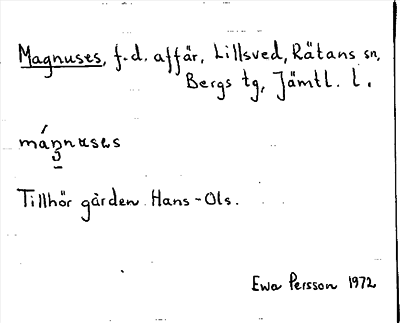 Magnuses, f.d. affär, Lillsved, Rätans sn,
Bergs tg, Jämtl. l.
máŋnuses
Tillhör gården Hans-Ols.
Ewa Persson 1972